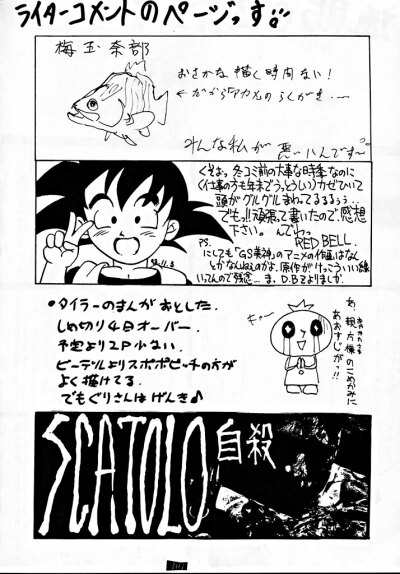 ライターコメントのページっす。
梅玉奈部
おさかな描く時間ない！
←だからアカメのらくがき…
みんな私が悪いんです〜
くそぉっ 冬コミ前の大事な時季なのに
(仕事の方も年末でうっとうしい)カゼひいて
頭がグルグルまわってるるるぅぅ…
でもっ!!頑張って書いたので、感想
下さい。んでわっ
RED BELL.
PS.
にしても「GS美神」のアニメの作画はなん
とかなんねぇのかよ。原作がけっこういい線
いってんので残念…ま、D.B.Zよりましか.
'93.11.3
●タイラーのまんがおとした.
しめ切り4日オーバー.
予定より2P少ない.
ビーデルよりスポポビッチの方が
よく描けてる.
でもぐりさんはげんき♪
キャー
あ、親方様のこめかみに
あおすじがっ!!
SCATOLO
自殺